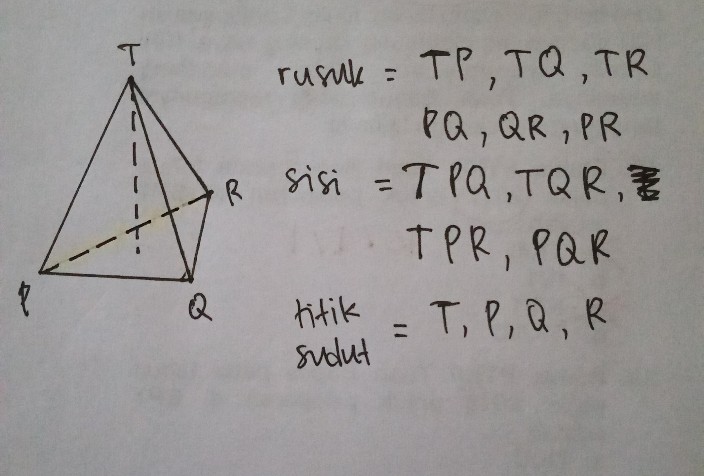 T
R
P
Q
rusuk = TP, TQ, TR
PQ, QR, PR
sisi = TPQ, TQR,
TPR, PQR
titik
sudut = T, P, Q, R